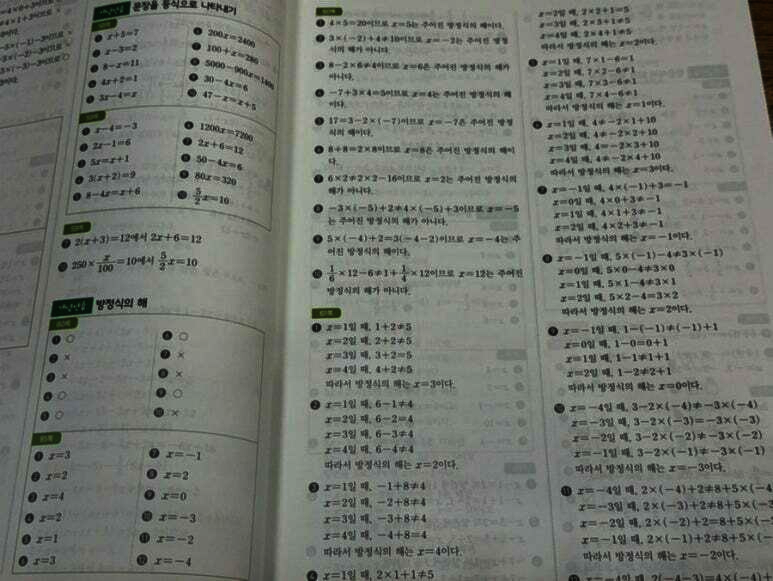 문장을 등식으로 나타내기
x+5=7
x-3=2
8-x=11
4x+2=1
3x-4=x
200x=2400
100+x=280
5000-900x=1400
30-4x=6
47-x=x+5
x-4=-3
2x-1=6
5x=x+1
3(x+2)=9
8-4x=x+6
1200x=7200
2x+6=12
50-4x=6
80x=320
5/2x=10
2(x+3)=12에서 2x+6=12
250×x/100=10에서 5/2x=10
방정식의 해
❶ ○
❷ ×
❸ ×
❹ ○
❺ ○
❻ ○
❼ ×
❽ ×
❾ ○
❿ ×
❶ x=3
❷ x=2
❸ x=4
❹ x=2
❺ x=1
❻ x=3
❼ x=-1
❽ x=2
❾ x=0
❿ x=-3
⓫ x=-2
⓬ x=-4
❶ 4×5=20이므로 x=5는 주어진 방정식의 해이다.
❷ 3×(-2)+4≠10이므로 x=-2는 주어진 방정
식의 해가 아니다.
❸ 8-2×6≠4이므로 x=6은 주어진 방정식의 해가
아니다.
❹ -7+3×4=5이므로 x=4는 주어진 방정식의 해
이다.
❺ 17=3-2×(-7)이므로 x=-7은 주어진 방정식
의 해이다.
❻ 8+8=2×8이므로 x=8은 주어진 방정식의 해이
다.
❼ 6×2≠2×2-16이므로 x=2는 주어진 방정식의
해가 아니다.
❽ -3×(-5)+2≠4×(-5)+3이므로 x=-5
는 주어진 방정식의 해가 아니다.
❾ 5×(-4)+2=3(-4-2)이므로 x=-4는 주
어진 방정식의 해이다.
❿ 1/6×12-6≠1+1/4×12이므로 x=12는 주어진
방정식의 해가 아니다.
❶ x=1일 때, 1+2≠5
x=2일 때, 2+2≠5
x=3일 때, 3+2=5
x=4일 때, 4+2≠5
따라서 방정식의 해는 x=3이다.
❷ x=1일 때, 6-1≠4
x=2일 때, 6-2=4
x=3일 때, 6-3≠4
x=4일 때, 6-4≠4
따라서 방정식의 해는 x=2이다.
❸ x=1일 때, -1+8≠4
x=2일 때, -2+8≠4
x=3일 때, -3+8≠4
x=4일 때, -4+8=4
따라서 방정식의 해는 x=4이다.
❹ x=1일 때, 2×1+1≠5
x=2일 때, 2×2+1=5
x=3일 때, 2×3+1≠5
x=4일 때, 2×4+1≠5
따라서 방정식의 해는 x=2이다.
❺ x=1일 때, 7×1-6=1
x=2일 때, 7×2-6≠1
x=3일 때, 7×3-6≠1
x=4일 때, 7×4-6≠1
따라서 방정식의 해는 x=1이다.
❻ x=1일 때, 4≠-2×1+10
x=2일 때, 4≠-2×2+10
x=3일 때, 4=-2×3+10
x=4일 때, 4≠-2×4+10
따라서 방정식의 해는 x=3이다.
❼ x=-1일 때, 4×(-1)+3=-1
x=0일 때, 4×0+3≠-1
x=1일 때, 4×1+3≠-1
x=2일 때, 4×2+3≠-1
따라서 방정식의 해는 x=-1이다.
❽ x=-1일 때, 5×(-1)-4≠3×(-1)
x=0일 때, 5×0-4≠3×0
x=1일 때, 5×1-4≠3×1
x=2일 때, 5×2-4=3×2
따라서 방정식의 해는 x=2이다.
❾ x=-1일 때, 1-(-1)≠(-1)+1
x=0일 때, 1-0=0+1
x=1일 때, 1-1≠1+1
x=2일 때, 1-2≠2+1
따라서 방정식의 해는 x=0이다.
❿ x=-4일 때, 3-2×(-4)≠-3×(-4)
x=-3일 때, 3-2×(-3)=-3×(-3)
x=-2일 때, 3-2×(-2)≠-3×(-2)
x=-1일 때, 3-2×(-1)≠-3×(-1)
따라서 방정식의 해는 x=-3이다.
⓫ x=-4일 때, 2×(-4)+2≠8+5×(-4)
x=-3일 때, 2×(-3)+2≠8+5×(-3)
x=-2일 때, 2×(-2)+2=8+5×(-2)
x=-1일 때, 2×(-1)+2≠8+5×(-1)
따라서 방정식의 해는 x=-2이다.